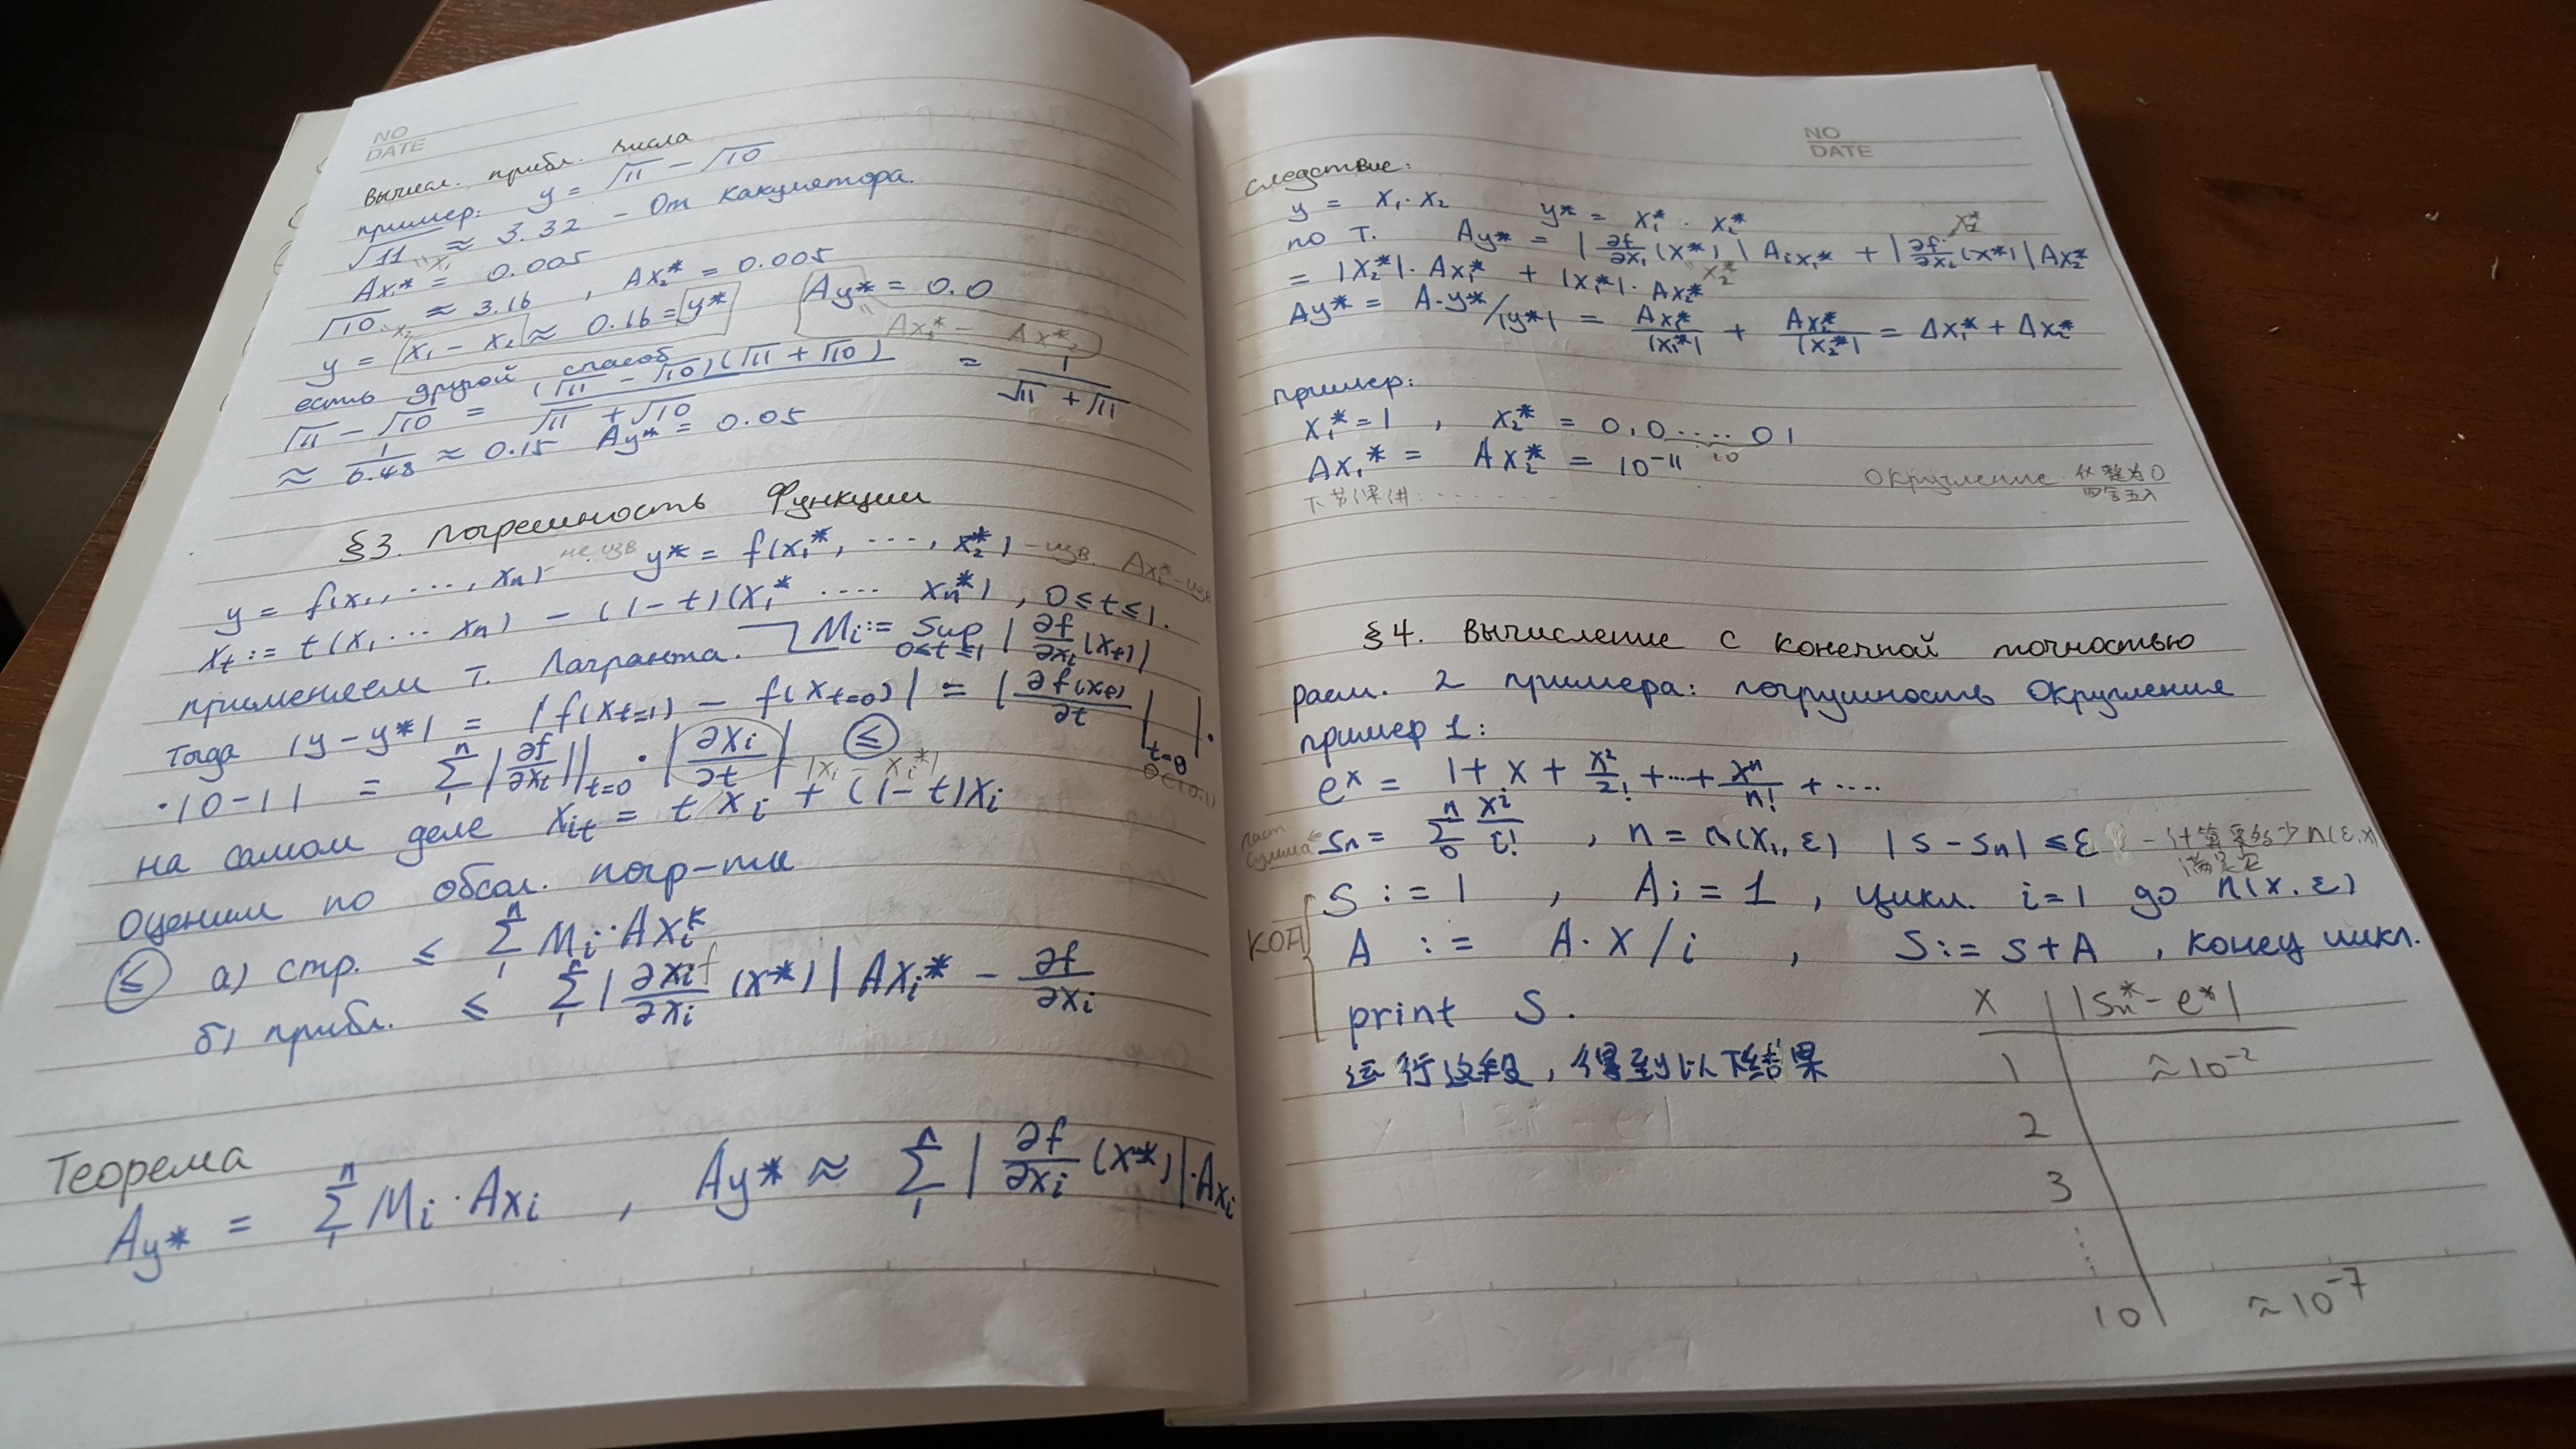 NO
DATE
Вычисл. прибл. числа
пример: y = √11 − √10
√11 ≈ 3.32 − От какулятора.
"x₁
Ax₁* = 0.005
√10 ≈ 3.16 , Ax₂* = 0.005
y = x₁ − x₂ ≈ 0.16 = y* Ay* = 0.0
Ax₁* − Ax*₂
есть другой способ
√11 − √10 = (√11 − √10)(√11 + √10) / √11 + √10 = 1 / √11 + √11
≈ 1/6.48 ≈ 0.15 Ay* = 0.05
§3. Погрешность Функции
y = f(x₁, ..., xₙ) − не изв y* = f(x₁*, ..., x₂*) − изв. Axᵢ* − изв
xₜ := t(x₁ ... xₙ) − (1−t)(x₁* .... xₙ*) , 0 ≤ t ≤ 1.
применяем т. Лагранта. Mᵢ := sup 0≤t≤1 | ∂f/∂xᵢ (xₜ)|
Тогда |y − y*| = |f(xₜ₌₁) − f(xₜ₌₀)| = | ∂f(xₜ)/∂t |ₜ₌θ | ·
θ∈(0,1)
· |0−1| = Σ₁ⁿ |∂f/∂xᵢ||ₜ₌₀ · |∂xᵢ/∂t| ≤
|xᵢ − xᵢ*|
на самом деле xᵢₜ = t xᵢ + (1−t)xᵢ
Оценим по обсол. погр-ти
≤ а) стр. ≤ Σ₁ⁿ Mᵢ · Axᵢ*
б) прибл. ≤ Σ₁ⁿ | ∂xᵢf/∂xᵢ (x*) | Axᵢ* − ∂f/∂xᵢ
Теорема
Ay* = Σ₁ⁿ Mᵢ · Axᵢ , Ay* ≈ Σ₁ⁿ | ∂f/∂xᵢ (x*)| · Axᵢ
NO
DATE
Следствие:
y = x₁ · x₂ y* = x₁* · x₂*
x₂*
по т. Ay* = | ∂f/∂x₁ (x*) | Aᵢx₁* + | ∂f/∂x₂ (x*) | Ax₂*
= |x₂*| · Ax₁* + |x₁*| · Ax₂*
x₂*
Ay* = A·y*/|y*| = Ax₁*/|x₁*| + Ax₂*/|x₂*| = Δx₁* + Δx₂*
Пример:
x₁* = 1 , x₂* = 0,0 .... 01
10
Ax₁* = Ax₂* = 10⁻¹¹
Округление 化整为0
四舍五入
下节课讲: .......
§4. Вычисление с конечной точностью
расм. 2 примера: погрушность Округления
пример 1:
eˣ = 1 + x + x²/2! + ... + xⁿ/n! + ....
част сумма ← Sₙ = Σ₀ⁿ xⁱ/i! , n = n(x₁, ε) |S − Sₙ| ≤ ε
S := 1 , A := 1 , цикл. i=1 до n(x, ε)
КОД
A := A · x / i , S := S + A , конец цикл.
print S.
运行这段, 得到以下结果
x |Sₙ* − eˣ|
1 ≈ 10⁻²
2
3
⋮
10 ≈ 10⁻⁷